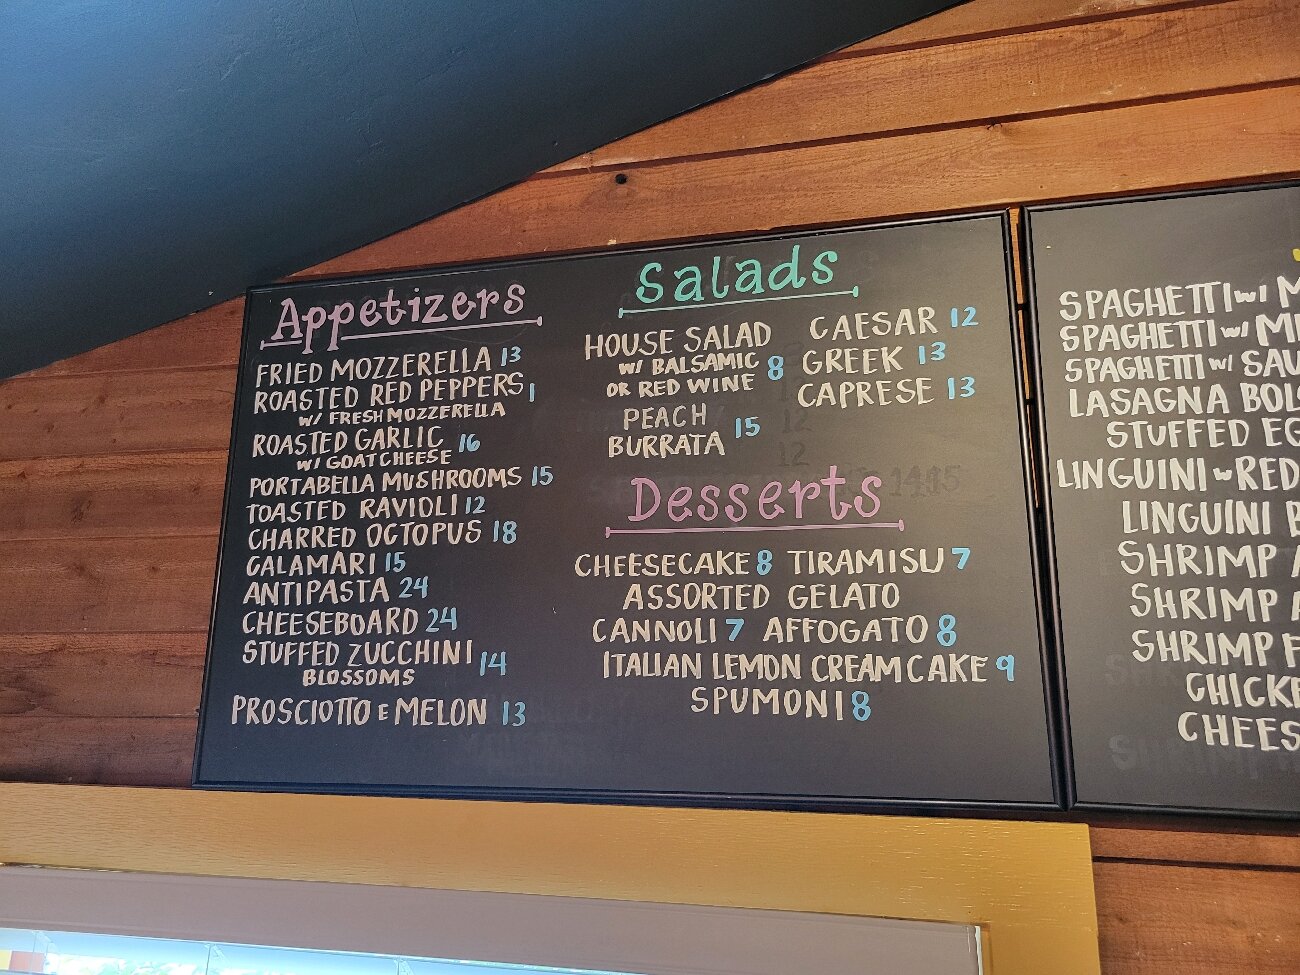 Appetizers
FRIED MOZZERELLA 13
ROASTED RED PEPPERS 1
w/ FRESH MOZZERELLA
ROASTED GARLIC 16
w/ GOAT CHEESE
PORTABELLA MUSHROOMS 15
TOASTED RAVIOLI 12
CHARRED OCTOPUS 18
CALAMARI 15
ANTIPASTA 24
CHEESEBOARD 24
STUFFED ZUCCHINI 14
BLOSSOMS
PROSCIOTTO E MELON 13
Salads
HOUSE SALAD
w/ BALSAMIC 8
OR RED WINE
PEACH
BURRATA 15
CAESAR 12
GREEK 13
CAPRESE 13
Desserts
CHEESECAKE 8 TIRAMISU 7
ASSORTED GELATO
CANNOLI 7 AFFOGATO 8
ITALIAN LEMON CREAM CAKE 9
SPUMONI 8
SPAGHETTI w/ M
SPAGHETTI w/ M
SPAGHETTI w/ SAU
LASAGNA BOL
STUFFED EG
LINGUINI w RED
LINGUINI B
SHRIMP A
SHRIMP A
SHRIMP F
CHICKE
CHEES